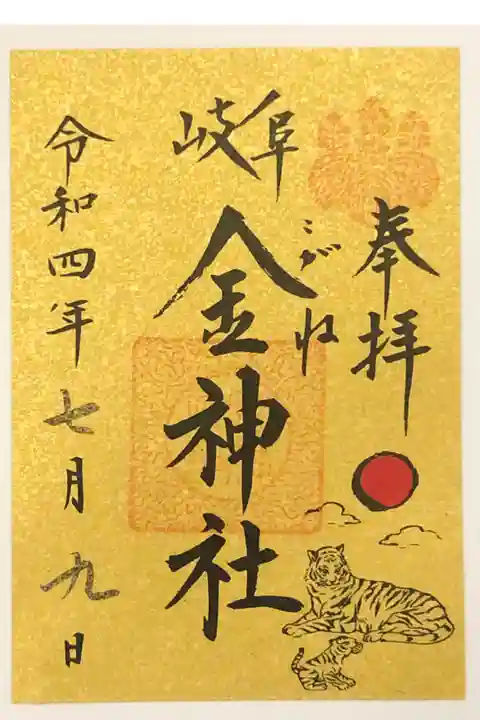 奉拝
岐阜
こがね
金神社
令和四年七月九日